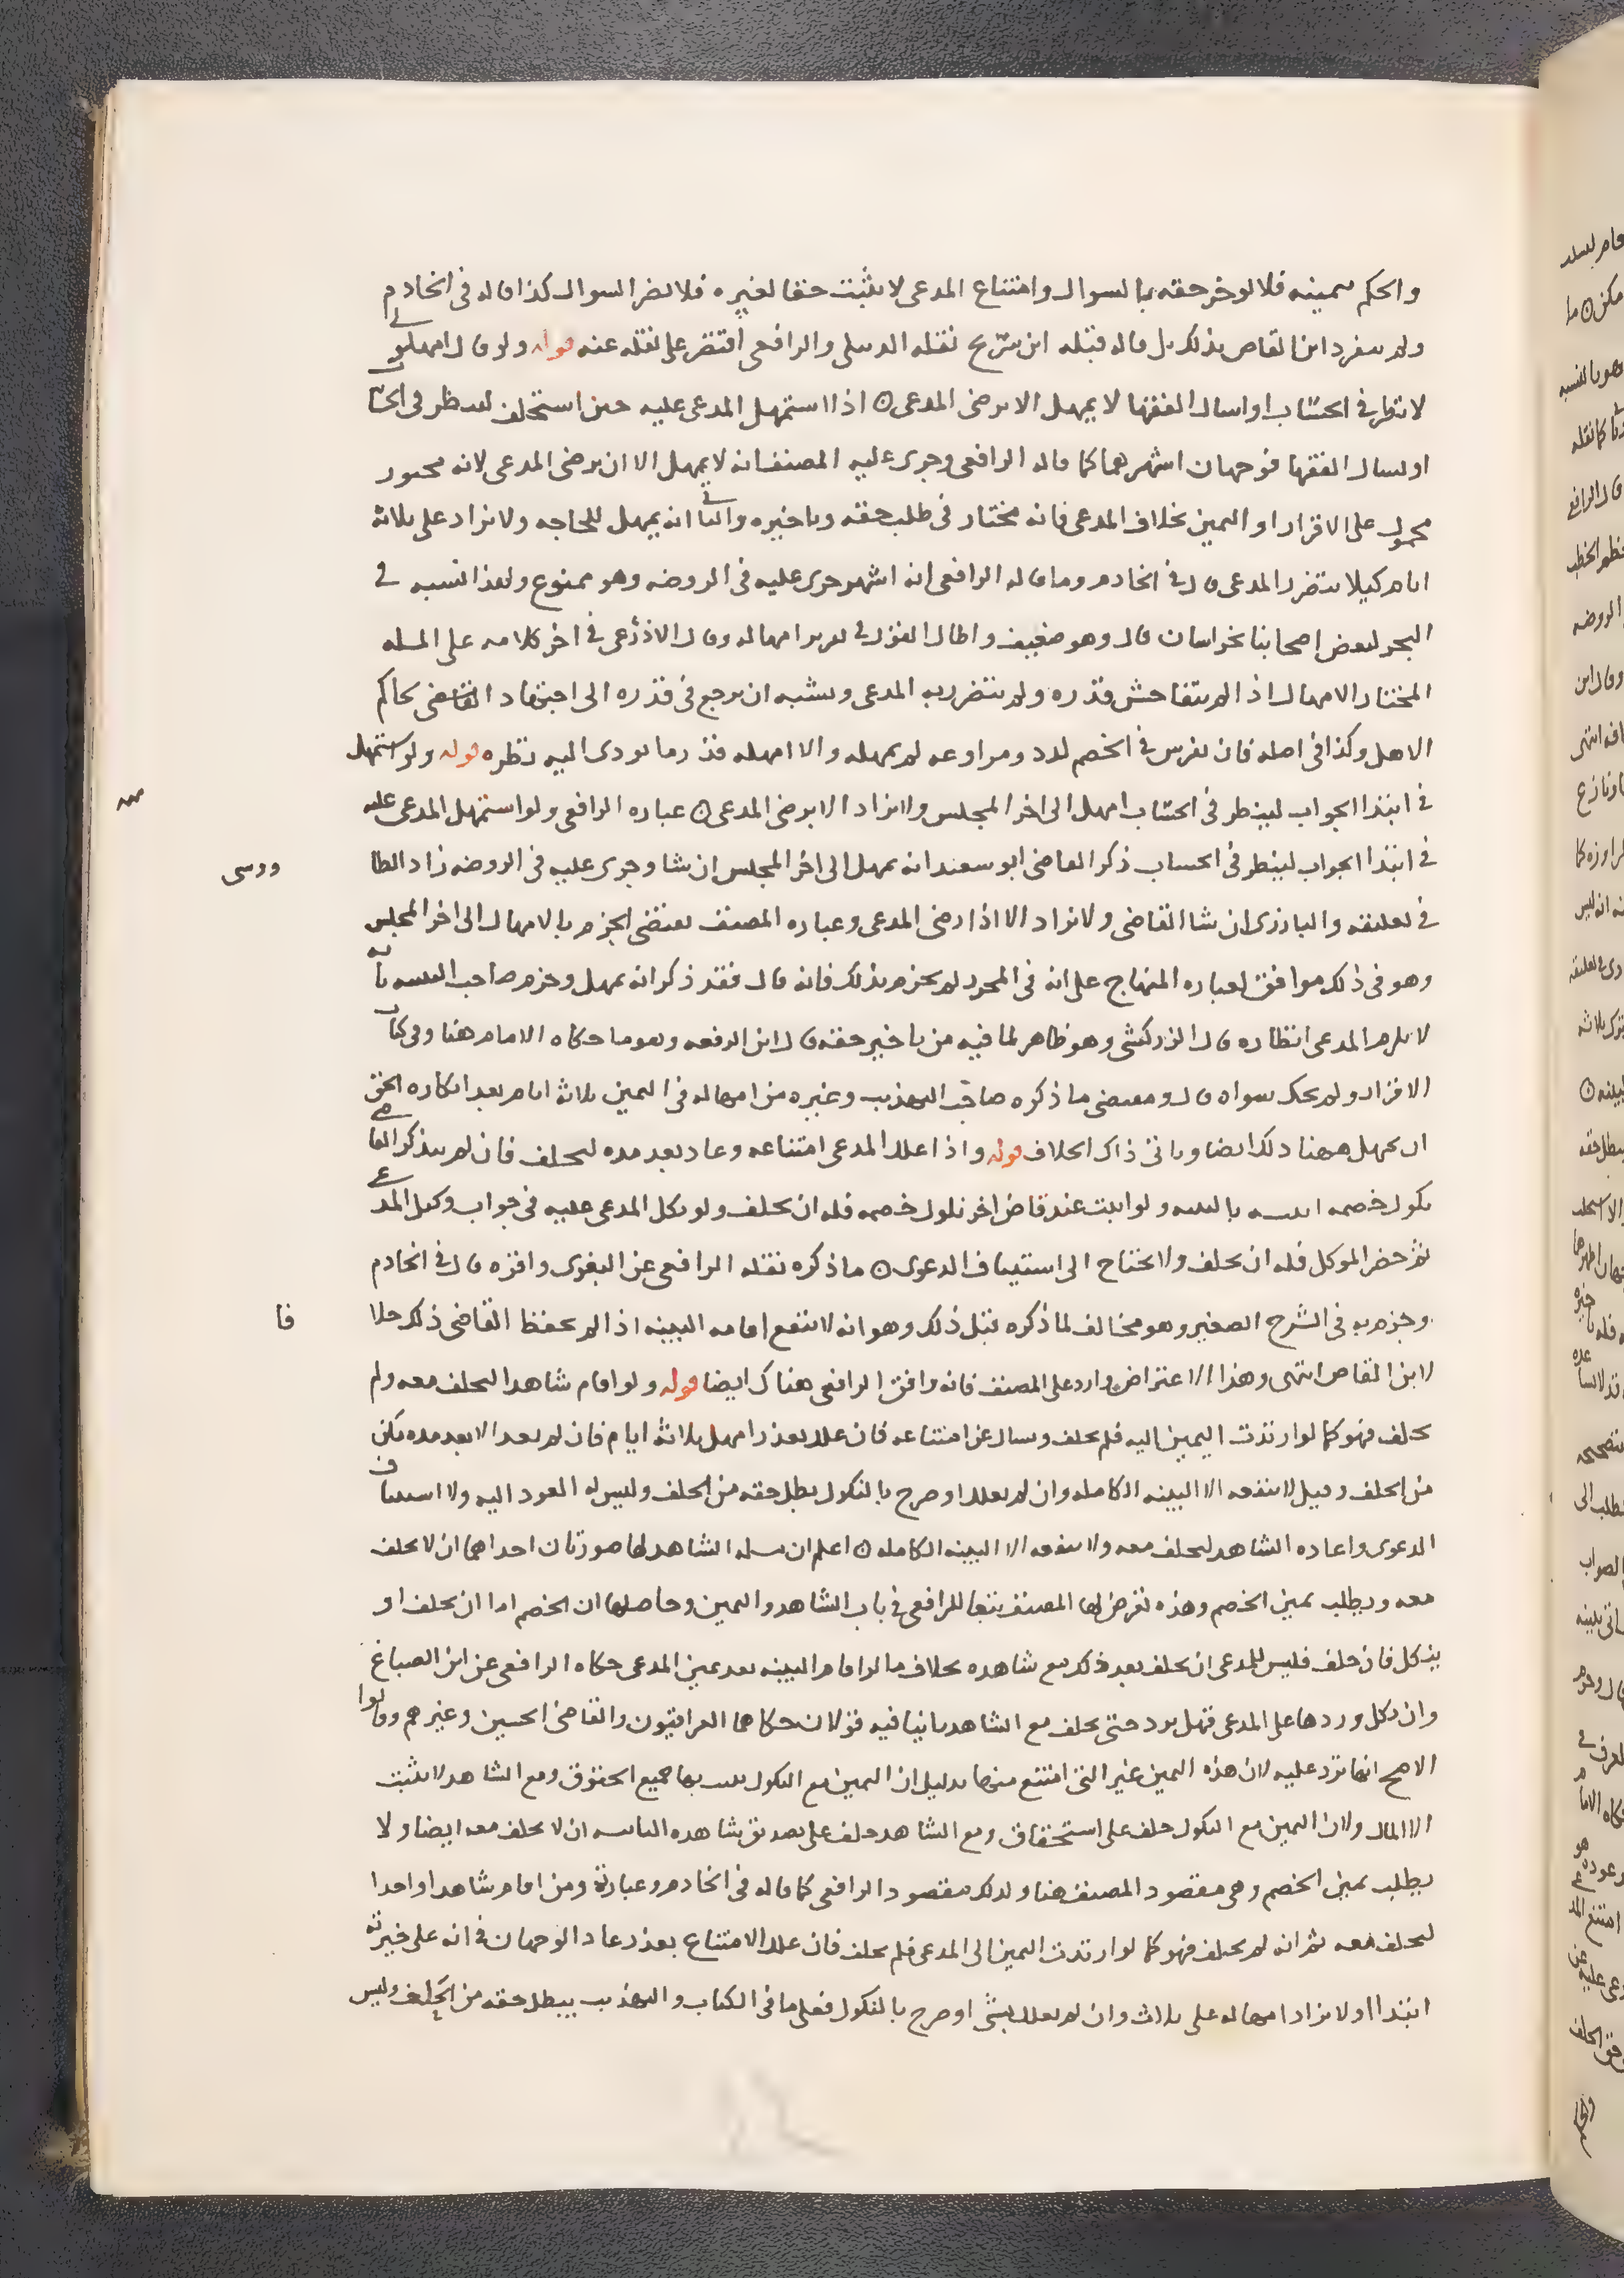 والحكم بيمينه فلا يوخر حقه بالسوال وامتناع المدعى لا يثبت حقا لغيره فلا يضر السوال كذا قاله فى الخادم
ولم ينفرد ابن القاص بذلك بل قاله قبله ابن سريج نقله الدبيلى والرافعى اقتصر على نقله عنه قوله ولو قال امهلونى
لانظر فى الحساب او اسال الفقها لا يمهل الا برضى المدعى ن اذا استمهل المدعى عليه حين استحلف لينظر فى الحساب
او يسال الفقها فوجهان اشهرهما كما قاله الرافعى وجرى عليه المصنف انه لا يمهل الا ان يرضى المدعى لانه مجبور
محمول على الاقرار او اليمين بخلاف المدعى فانه مختار فى طلب حقه وتاخيره والثانى انه يمهل للحاجه ولا يزاد على ثلاثه
ايام كيلا يتضرر المدعى قال فى الخادم وما قاله الرافعى انه اشهر جرى عليه فى الروضه وهو ممنوع ولهذا نسبه فى
البحر لبعض اصحابنا بخراسان قال وهو ضعيف واطال القول فى تقرير امهاله وقال الاذرعى فى اخر كلامه على المسله
المختار الامهال اذا لم يتفاحش قدره ولم يتضرر به المدعى ويشبه ان يرجع فى قدره الى اجتهاد القاضى كحاكم
الاهل وكذا فى اصله فان تفرس فى الخصم لدد ومراوغه لم يمهله والا امهله قدر ما يودى اليه نظره قوله ولو استمهل
فى ابتدا الجواب لينظر فى الحساب امهل الى اخر المجلس ولا يزاد الا برضى المدعى ن عباره الرافعى ولو استمهل المدعى عليه
فى ابتدا الجواب لينظر فى الحساب ذكر القاضى ابو سعد انه يمهل الى اخر المجلس ان شا وجرى عليه فى الروضه زاد الطا
ووسى
فى تعليقه والبارزى ان شا القاضى ولا يزاد الا اذا رضى المدعى وعباره المصنف تقتضى الجزم بالامهال الى اخر المجلس
وهو فى ذلك موافق لعباره المنهاج على انه فى المحرر لم يجزم بذلك فانه قال فقد ذكر انه يمهل وجزم صاحب التنبيه بانه
لا يلزم المدعى انتظاره قال الزركشى وهو ظاهر لما فيه من تاخير حقه قال ابن الرفعه وهو ما حكاه الامام هنا وفى كتاب
الاقرار ولم يحك سواه قال ومقتضى ما ذكره صاحب التهذيب وغيره من امهاله فى اليمين ثلاثه ايام بعد انكاره الحق
ان يمهل ههنا ذلك ايضا وياتى ذاك الخلاف قوله واذا علل المدعى امتناعه وعاد بعد مده ليحلف فان لم يتذكر القاضى
نكول خصمه اثبته بالبينه ولو اثبت عند قاض اخر نكول خصمه فله ان يحلف ولو نكل المدعى عليه فى جواب وكيل المدعى
ثم حضر الموكل فله ان يحلف ولا يحتاج الى استيناف الدعوى ن ما ذكره نقله الرافعى عن البغوى واقره قال فى الخادم
وجزم به فى الشرح الصغير وهو مخالف لما ذكره قبل ذلك وهو انه لا تنفع اقامه البينه اذا لم يحفظ القاضى ذلك خلا
فا
لابن القاص انتهى وهذا الاعتراض وارد على المصنف فانه وافق الرافعى هناك ايضا قوله ولو اقام شاهدا ليحلف معه ولم
يحلف فهو كما لو ارتدت اليمين اليه فلم يحلف ويسال عن امتناعه فان علل بعذر امهل ثلاثه ايام فان لم يعد الا بعد مده مكن
من الحلف وقيل لا ينفعه الا البينه الكامله وان لم يعلل او صرح بالنكول بطل حقه من الحلف وليس له العود اليه ولا استيناف
الدعوى واعاده الشاهد ليحلف معه ولا ينفعه الا البينه الكامله ن اعلم ان مسله الشاهد لها صورتان احداهما ان لا يحلف
معه ويطلب يمين الخصم وهذه تعرض لها المصنف تبعا للرافعى فى باب الشاهد واليمين وحاصلها ان الخصم اما ان يحلف او
ينكل فان حلف فليس للمدعى ان يحلف بعد ذلك مع شاهده بخلاف ما لو اقام البينه بعد يمين المدعى حكاه الرافعى عن ابن الصباغ
وان نكل وردها على المدعى فهل يرد حتى يحلف مع الشاهد ثانيا فيه قولان حكاها العراقيون والقاضى الحسين وغيرهم وقالوا
الاصح انها ترد عليه لان هذه اليمين غير التى امتنع منها بدليل ان اليمين مع النكول يثبت بها جميع الحقوق ومع الشاهد لا يثبت
الا المال ولان اليمين مع النكول حلف على استحقاق ومع الشاهد حلف على تصديق شاهده الثانيه ان لا يحلف معه ايضا ولا
يطلب يمين الخصم وهى مقصود المصنف هنا وكذلك مقصود الرافعى كما قاله فى الخادم وعبارته ومن اقام شاهدا واحدا
ليحلف معه ثم انه لم يحلف فهو كما لو ارتدت اليمين الى المدعى فلم يحلف فان علل الامتناع بعذر عاد الوجهان فى انه على خيرته
ابتدا او لا يزاد امهاله على ثلاث وان لم يعلل بشى او صرح بالنكول فعلى ما فى الكتاب والتهذيب يبطل حقه من الحلف وليس